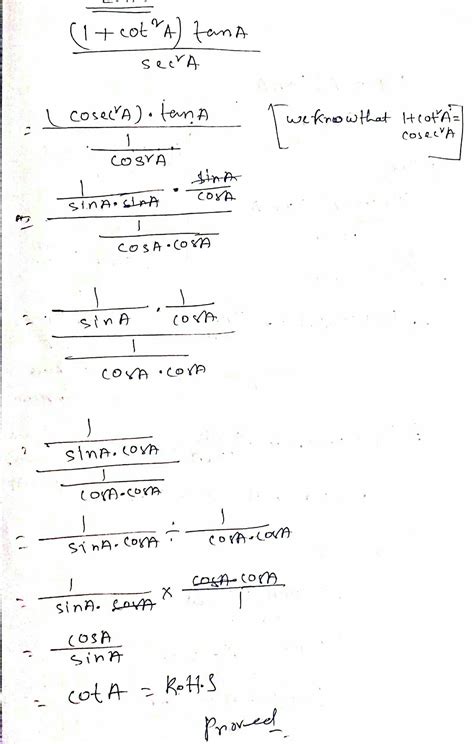 (1 + cot²A) tanA
sec²A
= (cosec²A) · tanA
1
cos²A
[we know that 1+cot²A =
cosec²A]
= 1/sinA·sinA · sinA/cosA
1
cosA·cosA
= 1/sinA · 1/cosA
1
cosA·cosA
= 1
sinA·cosA
1
cosA·cosA
= 1/sinA·cosA ÷ 1/cosA·cosA
= 1/sinA·cosA × cosA·cosA/1
= cosA
sinA
= cotA = R.H.S
Proved